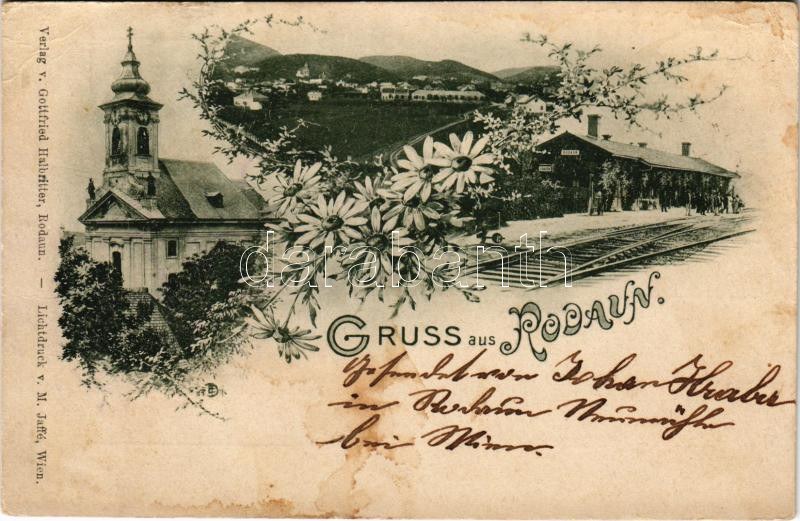 Verlag v. Gottfried Halbritter, Rodaun. — Lichtdruck v. M. Jaffé, Wien.
RODAUN
darabanth
GRUSS aus RODAUN.
Gesendet von Johan Hraba
in Rodaun Neumühle
bei Wien.